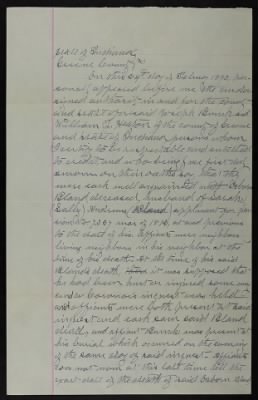 State of Indiana
Greene County SS
On this 24th day of Feb'y 1892, per-
sonally appeared before me the under-
signed authority in and for the county
and state aforesaid Joseph Burch and
William C. of the county of Greene
and state of Indiana persons whom
I certify to be respectable and entitled
to credit and who being by me first duly
sworn on their oaths say that they
were each well acquainted with Osborn
Bland deceased, husband of Sarah
(Sally) Andrews Bland applicant for pen-
sion No 7.267 war of 1846 at and previous
to the death of his. Affiants were neighbors
living neighbors in his neighborhood at the
time of his death. At the time of said
Bland's death it was supposed that
he had been hurt or injured some
and a Coroner's inquest was held -
and affiants were both present at said
inquest and each saw said Bland
dead and affiant Burch was present at
his burial which occurred on the evening
of the same day of said inquest. Affiants
can not now at this late time tell the
exact date of the death of said Osborn Bland